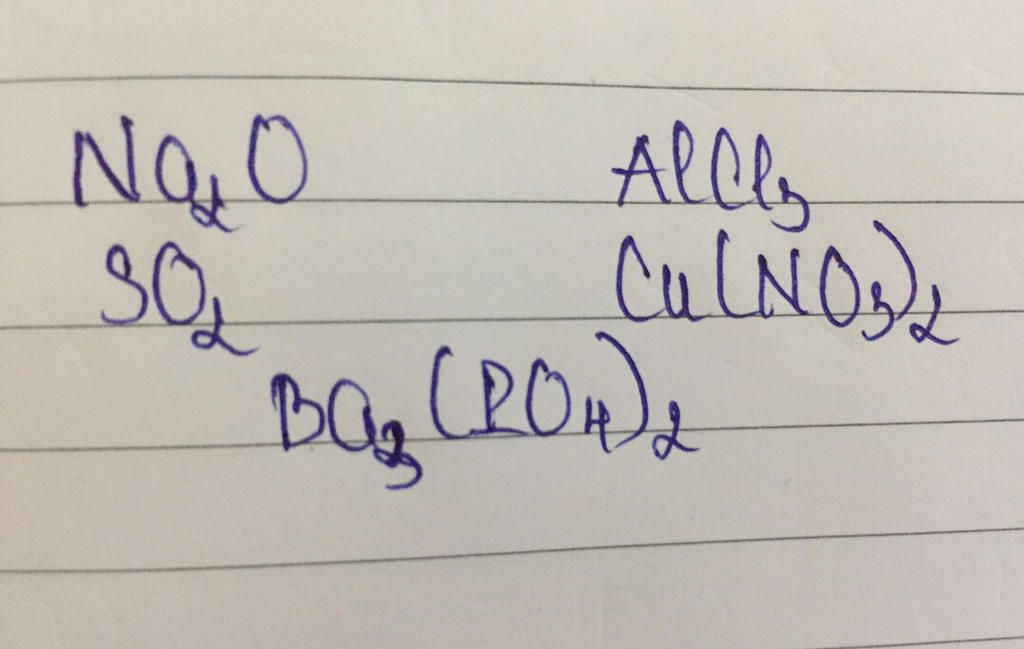 Na₂O AlCl₃
SO₂ Cu(NO₃)₂
Ba₃(PO₄)₂